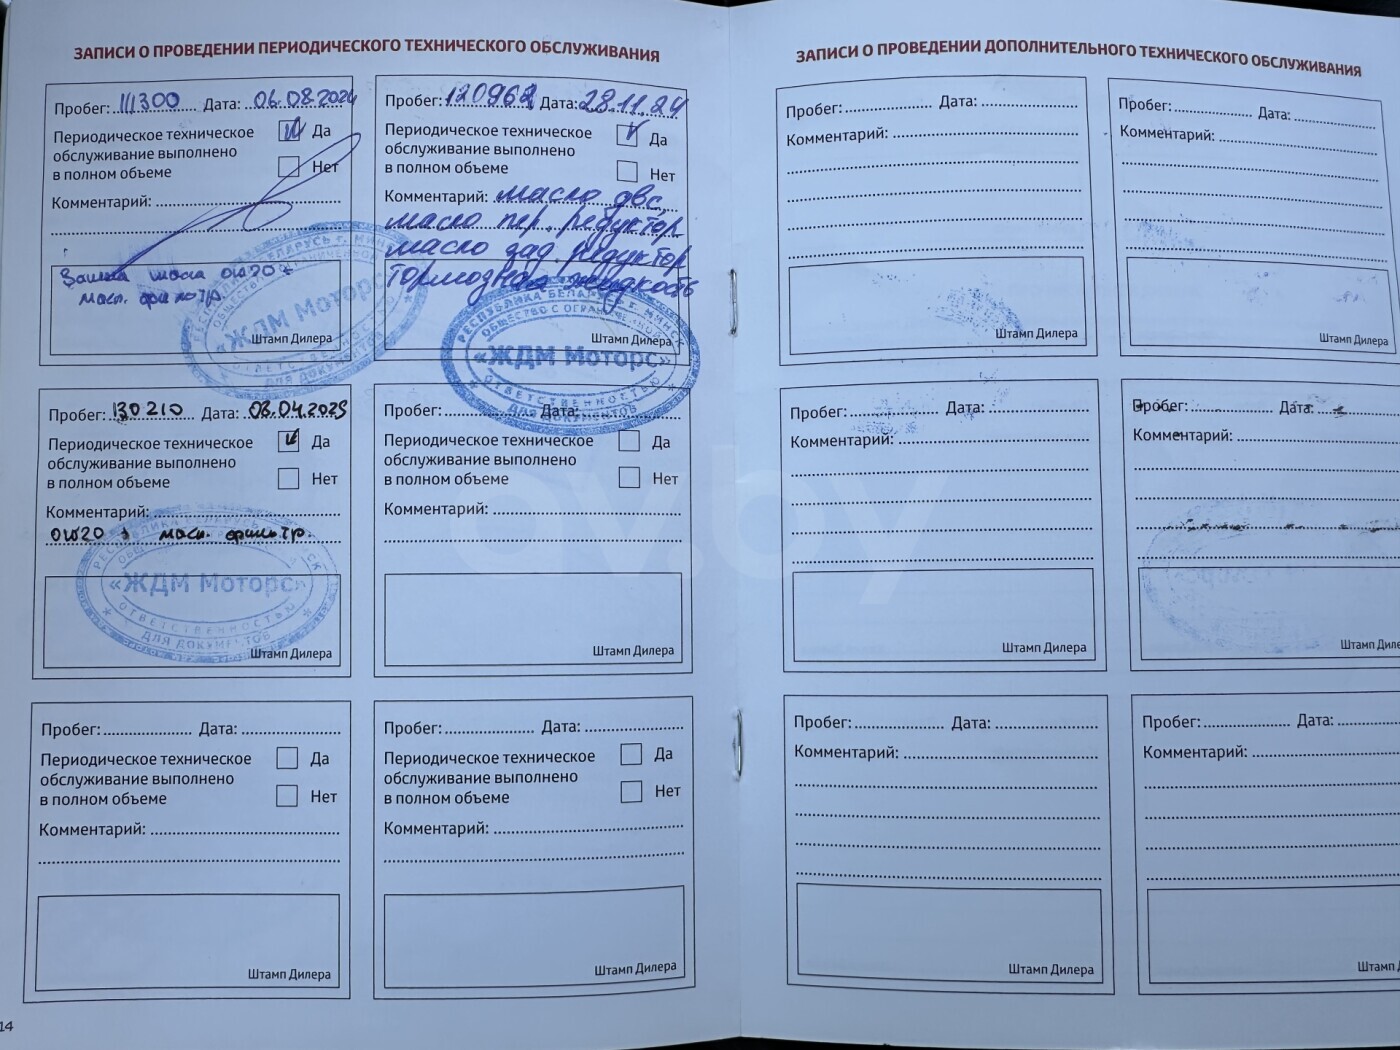 ЗАПИСИ О ПРОВЕДЕНИИ ПЕРИОДИЧЕСКОГО ТЕХНИЧЕСКОГО ОБСЛУЖИВАНИЯ
Пробег: 111300 Дата: 06.08.2024
Периодическое техническое
обслуживание выполнено
в полном объеме
Да
Нет
Комментарий:
масла 0W20 +
масл. фильтр.
РЕСПУБЛИКА БЕЛАРУСЬ г. МИНСК
«ЖДМ Моторс»
ОТВЕТСТВЕННОСТЬЮ
ДЛЯ ДОКУМЕНТОВ
Штамп Дилера
Пробег: 120962 Дата: 28.11.24
Периодическое техническое
обслуживание выполнено
в полном объеме
Да
Нет
Комментарий: масло двс,
масло пер. редуктор
масло зад. редуктор
тормозная жидкость
РЕСПУБЛИКА БЕЛАРУСЬ г. МИНСК
ОБЩЕСТВО С ОГРАНИЧЕННОЙ
«ЖДМ Моторс»
ОТВЕТСТВЕННОСТЬЮ
ДЛЯ ДОКУМЕНТОВ
Штамп Дилера
Пробег: 130210 Дата: 03.04.2025
Периодическое техническое
обслуживание выполнено
в полном объеме
Да
Нет
Комментарий:
0W20 + масл. фильтр.
РЕСПУБЛИКА БЕЛАРУСЬ г. МИНСК
«ЖДМ Моторс»
ОТВЕТСТВЕННОСТЬЮ
ДЛЯ ДОКУМЕНТОВ
Штамп Дилера
Пробег: Дата:
Периодическое техническое
обслуживание выполнено
в полном объеме
Да
Нет
Комментарий:
Штамп Дилера
Пробег: Дата:
Периодическое техническое
обслуживание выполнено
в полном объеме
Да
Нет
Комментарий:
Штамп Дилера
Пробег: Дата:
Периодическое техническое
обслуживание выполнено
в полном объеме
Да
Нет
Комментарий:
Штамп Дилера
14
ЗАПИСИ О ПРОВЕДЕНИИ ДОПОЛНИТЕЛЬНОГО ТЕХНИЧЕСКОГО ОБСЛУЖИВАНИЯ
Пробег: Дата:
Комментарий:
Штамп Дилера
Пробег: Дата:
Комментарий:
Штамп Дилера
Пробег: Дата:
Комментарий:
Штамп Дилера
Пробег: Дата:
Комментарий:
Штамп Диле
Пробег: Дата:
Комментарий:
Штамп Дилера
Пробег: Дата:
Комментарий:
Штамп
av.by